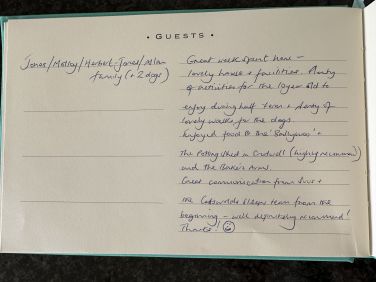 • GUESTS •
Jones/Molloy/Herbert-Jones/Allan
family (+2 dogs)
Great week spent here –
lovely house + facilities. Plenty
of activities for the 10 year old to
enjoy during half term + plenty of
lovely walks for the dogs.
Enjoyed food @ the +
The Potting Shed in Crudwell (highly recommend)
and the Bakers Arms.
Great communication from +
the Cotswolds team from the
beginning – will definitely recommend!
Thanks! ☺